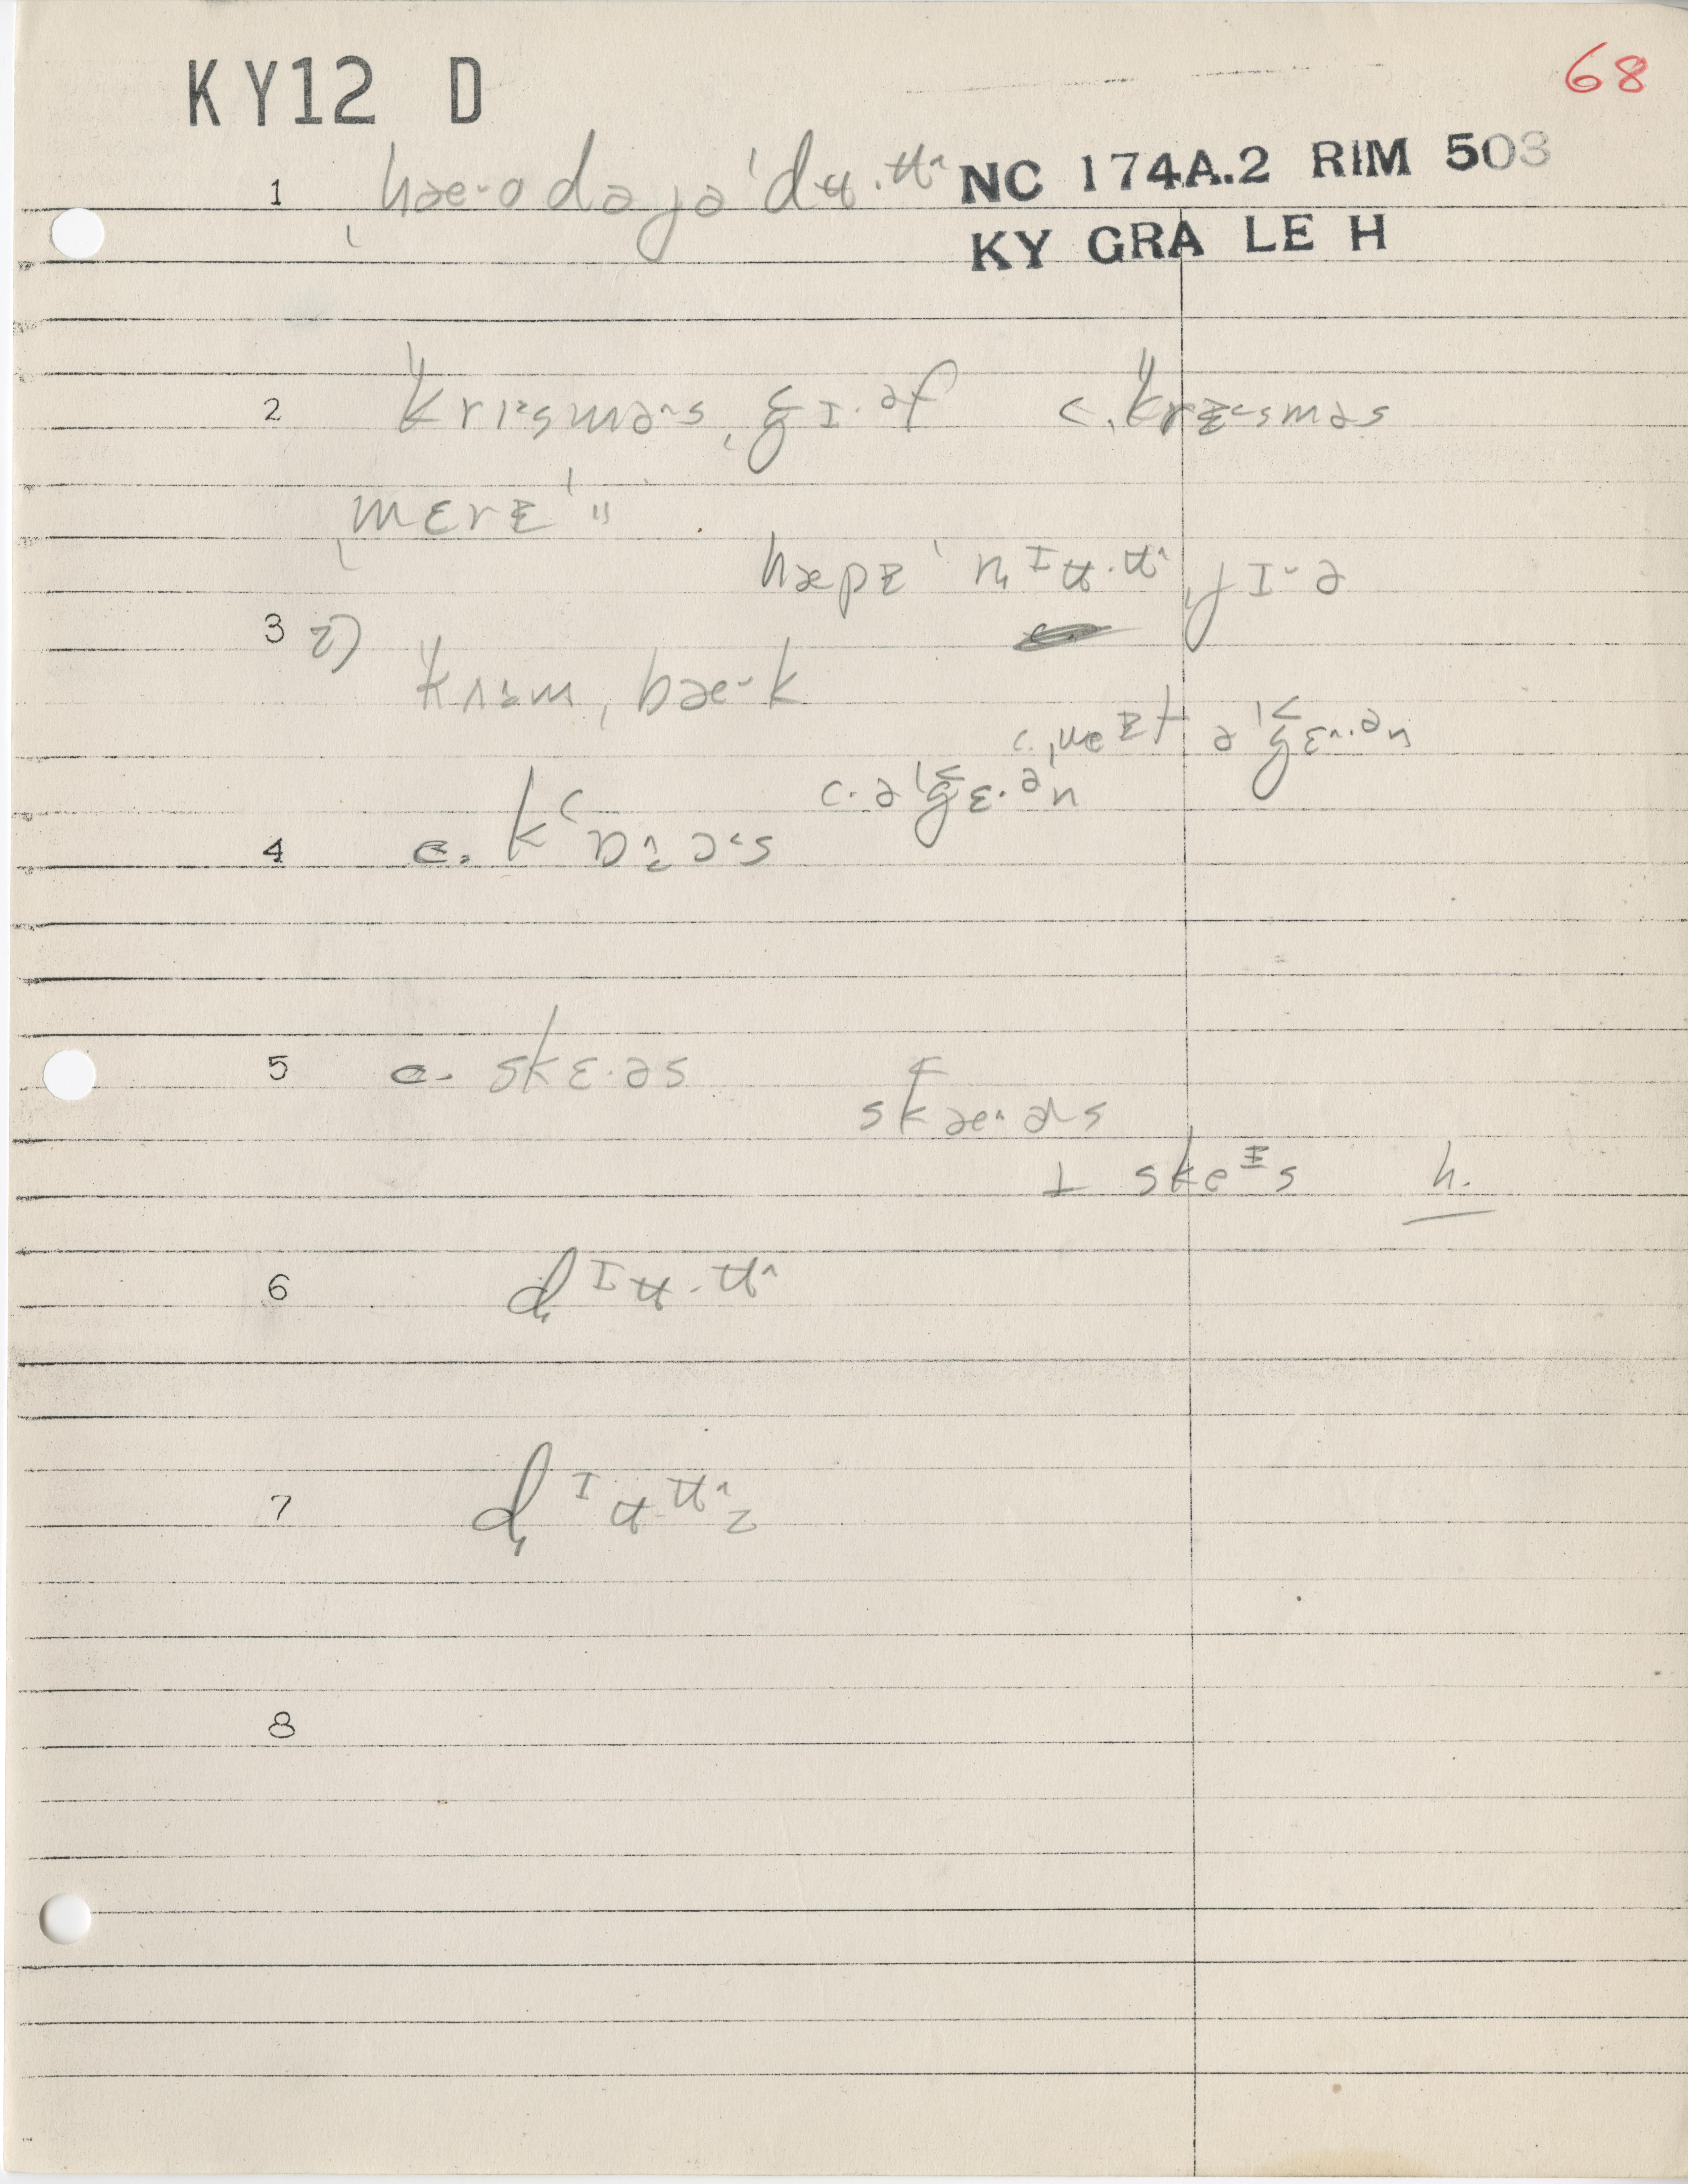 KY12 D 68
1 ˌhæ˘o də jə ˈdʉ·ʉ^ NC 174A.2 RIM 503
KY GRA LE H
2 ˈˈkrɪsmə˂s ˌgɪ·əf c. ˈˈkrɪ˂smәs
ˌmɛrɪˈ "
hæpɪ ˈn̡ᶦʉ·ʉ^ ˌjɪ˘ə
3 2)
ˈˈkʌəm ˌbæ˘k
c. ˌmeɪt əˈgɛ^·ən
c. əˈgɛ·ən
4 c. kʻ ɔ˂s
5 c. skɛ·əs
skæ^əs
⊥ skeᶦs h.
6 d̡ᶦʉ·ʉ^
7 d̡ᶦʉ·ʉ^z
8